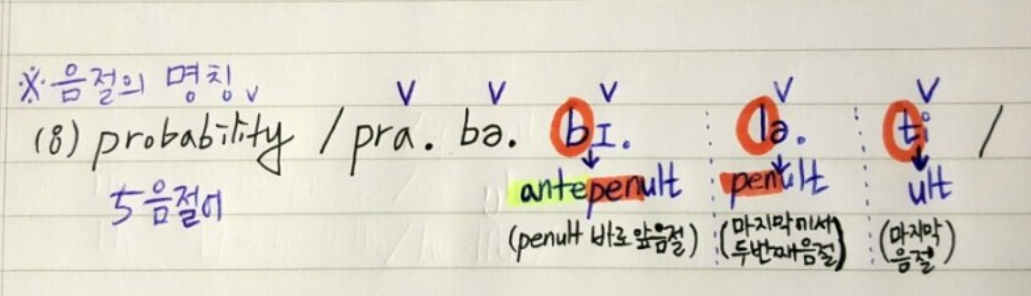 ※음절의 명칭
V V V V V
(8) probability / pra. bə. bɪ. lə. ti /
5음절어 antepenult penult ult
(penult 바로 앞음절) (마지막에서 두번째음절) (마지막 음절)